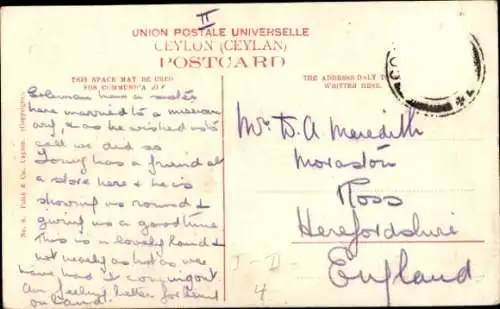 II
UNION POSTALE UNIVERSELLE
CEYLON (CEYLAN)
POSTCARD
THIS SPACE MAY BE USED
FOR COMMUNICA
THE ADDRESS ONLY TO
WRITTEN HERE.
Coleman have a sister
here married to a
& as he wished us to
call we did so
has a friend at
a store here & he is
showing us round &
giving us a good time
This is a lovely land &
not nearly as hot as we
have had it coming out
Am feeling better for being
on land.
Mr D. A Meredith
Moraston
Ross
Herefordshire
England
J - D -
4
& Co., Ceylon. (Copyright).